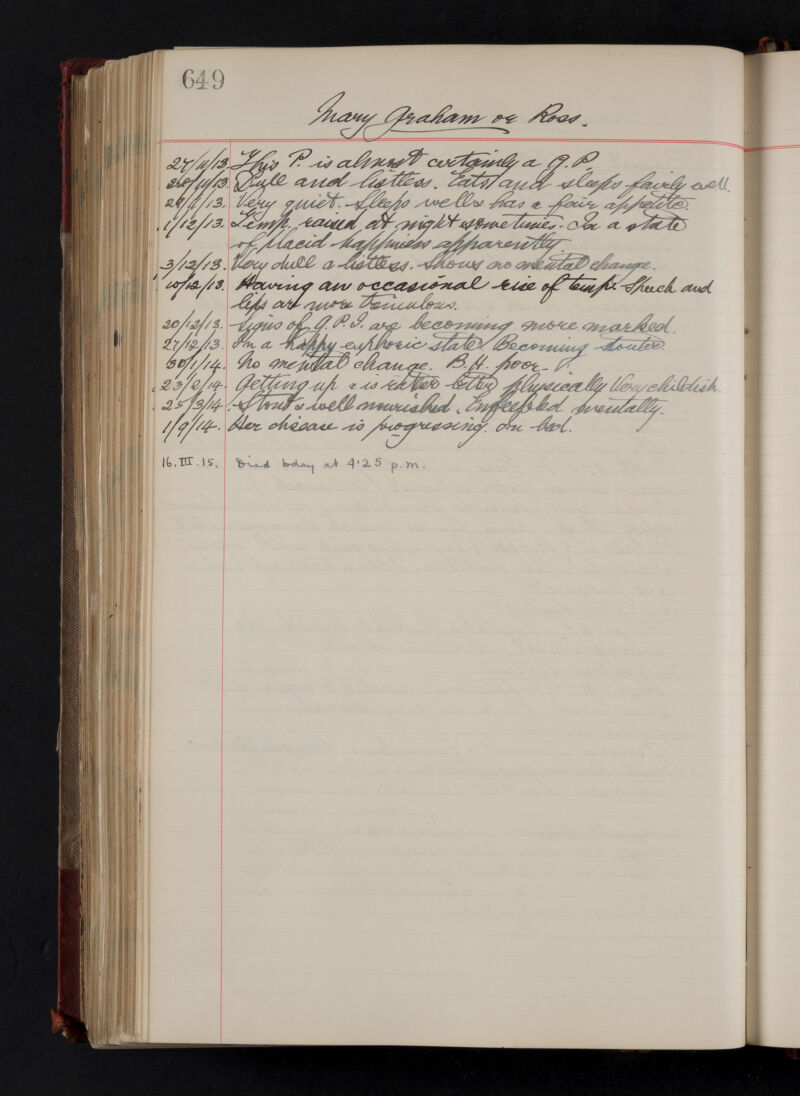 649
Mary Graham or Ross.
27/11/13. This P. is almost certainly a G.P.
28/11/13. Dull and listless. Eats and sleeps fairly well.
29/11/13. Very quiet. Sleeps well & has a fair appetite.
1/12/13. Temp. raised at night sometimes. In a state
of placid happiness apparently.
3/12/13. Very dull & listless. Shows no mental change.
10/12/13. Having an occasional rise of temp. Speech and
lips are more tremulous.
20/12/13. Signs of G.P.I. are becoming more marked.
27/12/13. In a happy euphoric state. Becoming stouter.
30/1/14. No mental change. B.H. poor.
23/2/14. Getting up & is rather better physically. Very childish.
25/3/14. Stout & well nourished. Enfeebled mentally.
1/9/14. Her disease is progressing. In bed.
16.III.15. Died today at 4.25 p.m.